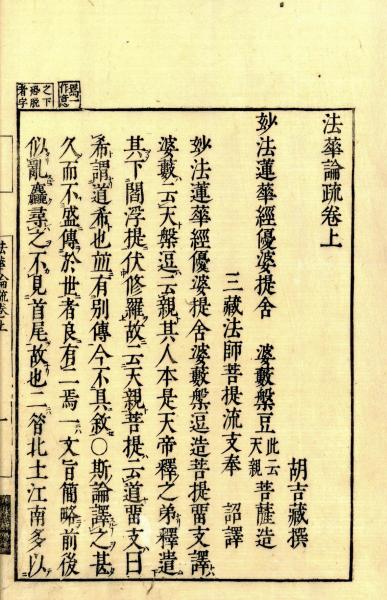 法華論疏卷上
胡吉藏撰
妙法蓮華經優婆提舍　婆藪槃豆此云天親菩薩造
三藏法師菩提流支奉　詔譯
妙法蓮華經優婆提舍婆藪槃逗造菩提畱支譯
婆藪云天槃逗云親其人本是天帝釋之弟釋遣
其下閻浮提伏修羅故云天親菩提云道畱支曰
希謂道希也竝有別傳今不具敘○斯論譯之甚
久而不盛傳於世者良有二焉一文旨簡略前後
似亂麤尋之不見首尾故也二管北土江南多以
焉一作意
之下
寤脫
者字
法華論疏卷上
一